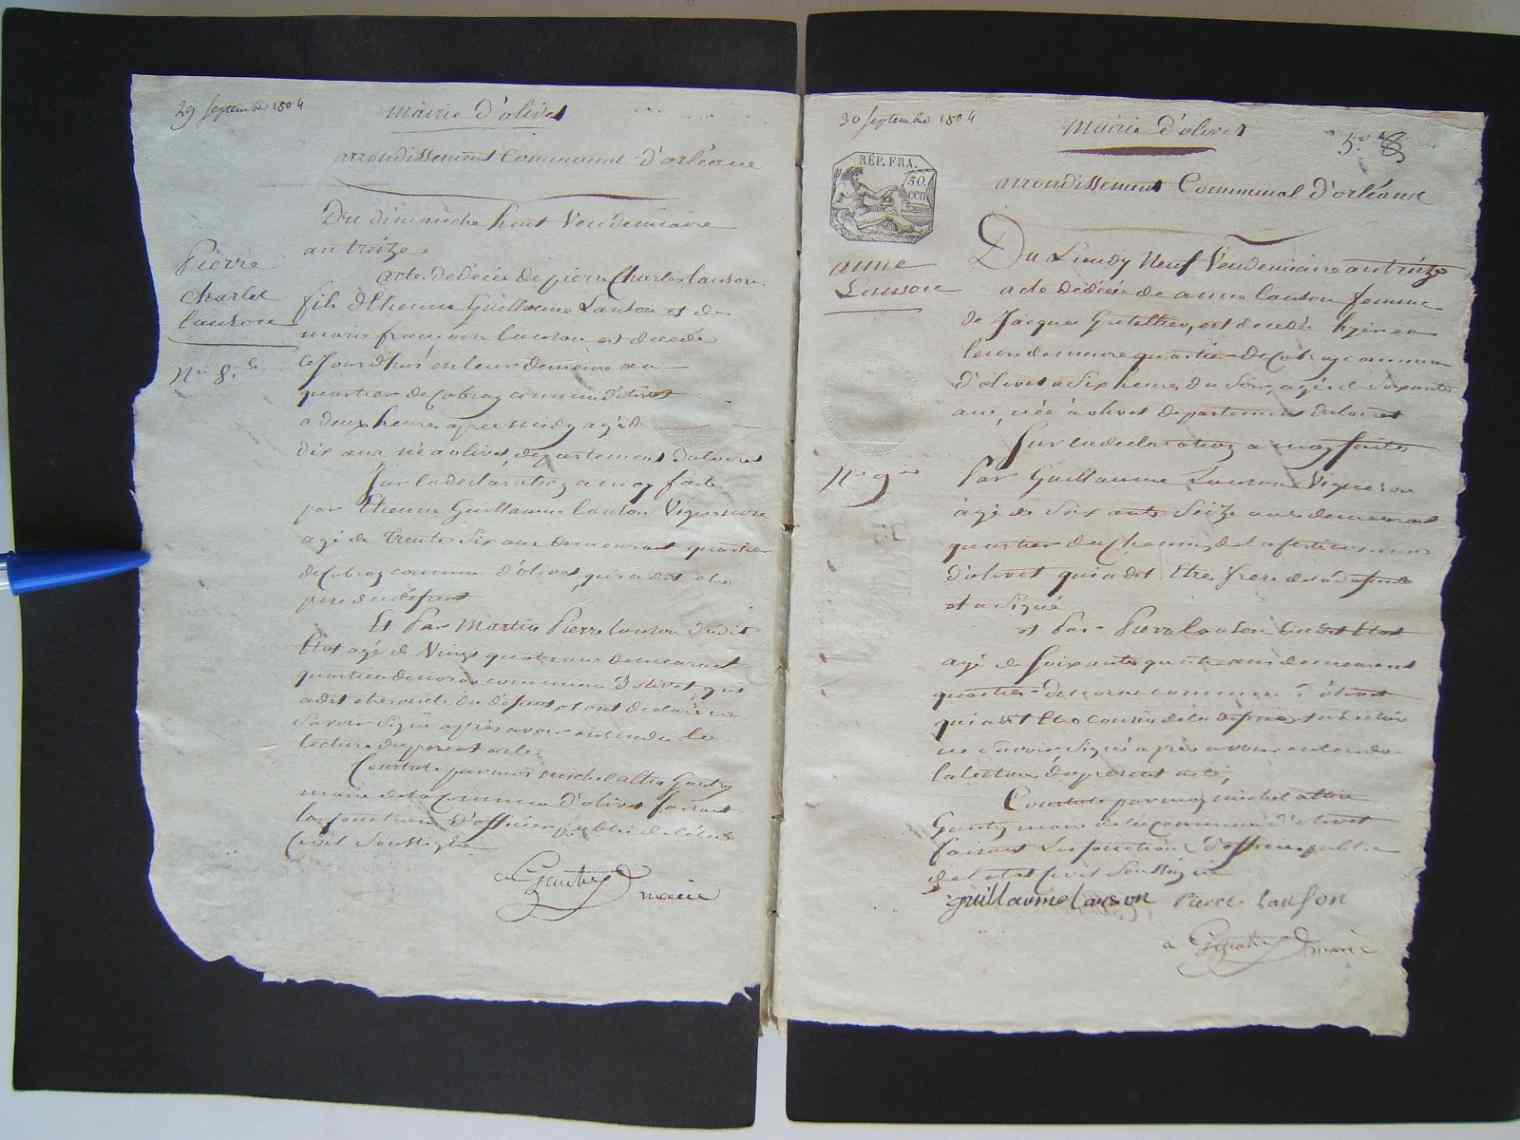 29 Septembre 1804
Mairie d'olivet
arrondissement Communal d'orléans
Pierre
Charles
Lauson
Nº 8.
Du dimanche huit Vendemiaire
an treize
acte de décès de pierre Charles lauson
fils d'Etienne Guillaume Lauson et de
marie françoise lauson est décédé
cejourd'hui en leur demeure au
quartier de Cobray commune d'olivet
a deux heures apres midy agé de
dix ans né a olivet, département du loiret
Sur la declaration a moy faite
par Etienne Guillaume lauson Vigneron
agé de trente six ans demeurant quartier
de Cobray commune d'olivet qui a dit etre
pere du défunt
Et Par Martin Pierre lauson dudit
Etat agé de Vingt quatre ans demeurant
quartier de commune d'olivet, qui
a dit etre oncle du défunt et ont declaré ne
Savoir Signé après avoir entendu le
lecture du present acte.
Constaté par moi michel altin Gauty
maire de la Commune d'olivet faisant
les fonctions d'officier public de l'état
Civil Soussigné
a Gauty maire
30 Septembre 1804
Mairie d'olivet
5.
RÉP. FRA.
50.
arrondissement Communal d'orléans
anne
Lauson
Nº 9
Du Lundy Neuf Vendemiaire an treize
acte de décès de anne lauson femme
de Jacques est décédée hyer en
leur demeure quartier de Cobray commune
d'olivet a Six heures du Soir, agée de Soixante
ans, née à olivet departement du loiret
Sur la declaration a moy faite
Par Guillaume Lauson Vigneron
agé de Soixante Seize ans demeurant
quartier du commune
d'olivet qui a dit Etre frere de la defunte
et a Signé
et Par Pierre lauson dudit Etat
agé de Soixante quatre ans demeurant
quartier de commune d'olivet
qui a dit Etre cousin de la defunte et a déclaré
ne Savoir Signé après avoir entendu
la lecture du present acte,
Constaté par moy michel altin
Gauty maire de la commune d'olivet
faisant les fonctions d'officier public
de l'etat Civil Soussigné
guillaume lauson Pierre lauson
a Gauty maire